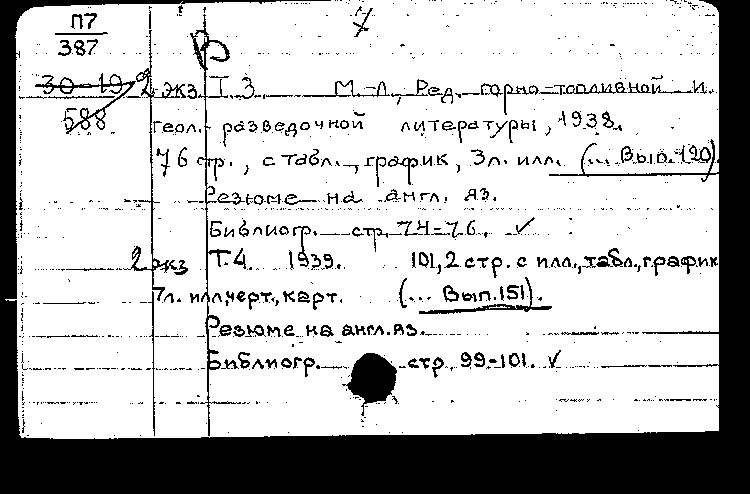 П7
387
7
В
30-19
588
2 экз. Т.3. М.-Л., Ред. горно-топливной и
геол.-разведочной литературы, 1938.
76 стр., с табл., график, 3л. илл. (... Вып. 120).
Резюме на англ. яз.
Библиогр. стр. 74-76. ✓
2 экз Т.4. 1939. 101,2 стр. с илл., табл., график
7л. илл.черт., карт. (... Вып.151).
Резюме на англ.яз.
Библиогр. стр. 99-101. ✓